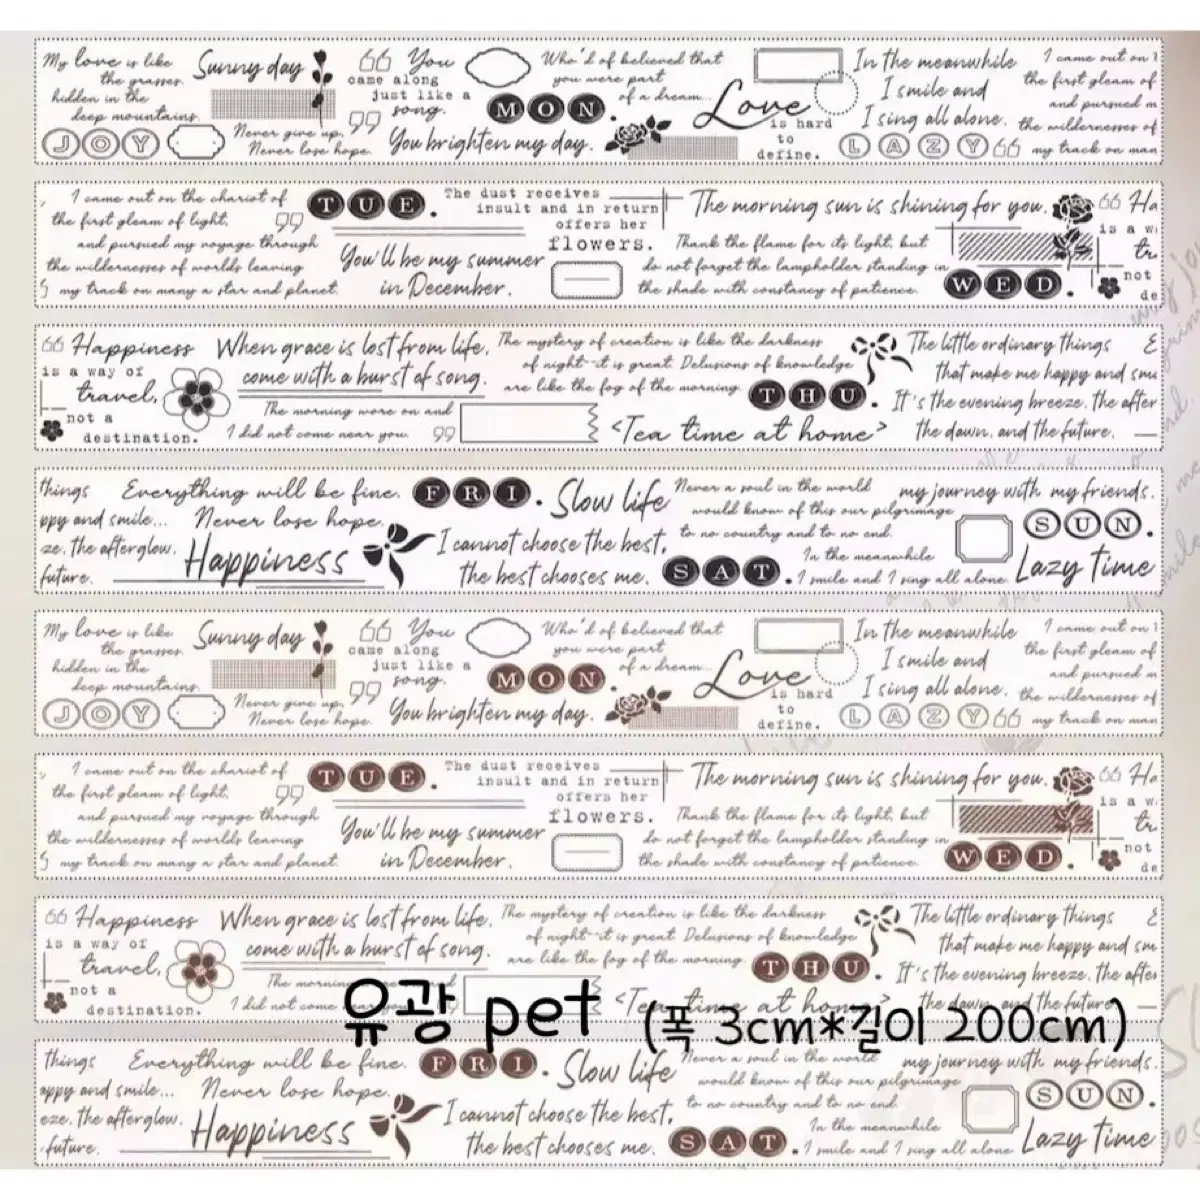 My love is like
the grasses
hidden in the
deep mountains.
Sunny day
JOY
Never give up,
Never lose hope.
66 You
came along
just like a
song. 99
You brighten my day.
Who'd of believed that
you were part
of a dream...
MON.
Love
is hard
to
define.
In the meanwhile
I smile and
I sing all alone.
LAZY
I came out on
the first gleam of
and pursued m
the wildernesses of
66 my track on man
I came out on the chariot of
the first gleam of light,
and pursued my voyage through
the wildernesses of worlds leaving
my track on many a star and planet.
99
TUE.
You'll be my summer
in December.
The dust receives
insult and in return
offers her
flowers.
The morning sun is shining for you.
Thank the flame for its light, but
do not forget the lampholder standing in
the shade with constancy of patience.
WED.
66 Ha
is a w
tr
not
de
66 Happiness
is a way of
travel,
not a
destination.
When grace is lost from life,
come with a burst of song.
The morning wore on and
I did not come near you. 99
The mystery of creation is like the darkness
of night--it is great. Delusions of knowledge
are like the fog of the morning.
THU.
<Tea time at home>
The little ordinary things
that make me happy and smi
It's the evening breeze, the after
the dawn, and the future.
E
things
ppy and smile...
ze, the afterglow,
future.
Everything will be fine.
Never lose hope.
Happiness
FRI.
I cannot choose the best,
the best chooses me.
Slow life
SAT.
Never a soul in the world
would know of this our pilgrimage
to no country and to no end.
In the meanwhile
I smile and I sing all alone.
my journey with my friends.
SUN.
Lazy time
My love is like
the grasses
hidden in the
deep mountains.
Sunny day
JOY
Never give up,
Never lose hope.
66 You
came along
just like a
song. 99
You brighten my day.
Who'd of believed that
you were part
of a dream...
MON.
Love
is hard
to
define.
In the meanwhile
I smile and
I sing all alone.
LAZY
I came out on
the first gleam of
and pursued m
the wildernesses of
66 my track on man
I came out on the chariot of
the first gleam of light,
and pursued my voyage through
the wildernesses of worlds leaving
my track on many a star and planet.
99
TUE.
You'll be my summer
in December.
The dust receives
insult and in return
offers her
flowers.
The morning sun is shining for you.
Thank the flame for its light, but
do not forget the lampholder standing in
the shade with constancy of patience.
WED.
66 Ha
is a w
tr
not
de
66 Happiness
is a way of
travel,
not a
destination.
When grace is lost from life,
come with a burst of song.
The morning
I did not come
The mystery of creation is like the darkness
of night--it is great. Delusions of knowledge
are like the fog of the morning.
THU.
<Tea time at home>
The little ordinary things
that make me happy and sm
It's the evening breeze, the after
the dawn, and the future.
E
유광 pet (폭 3cm*길이 200cm)
things
appy and smile...
eze, the afterglow,
future.
Everything will be fine.
Never lose hope.
Happiness
FRI.
I cannot choose the best,
the best chooses me.
Slow life
SAT.
Never a soul in the world
would know of this our pilgrimage
to no country and to no end.
In the meanwhile
I smile and I sing all alone
my journey with my friends.
SUN.
Lazy time